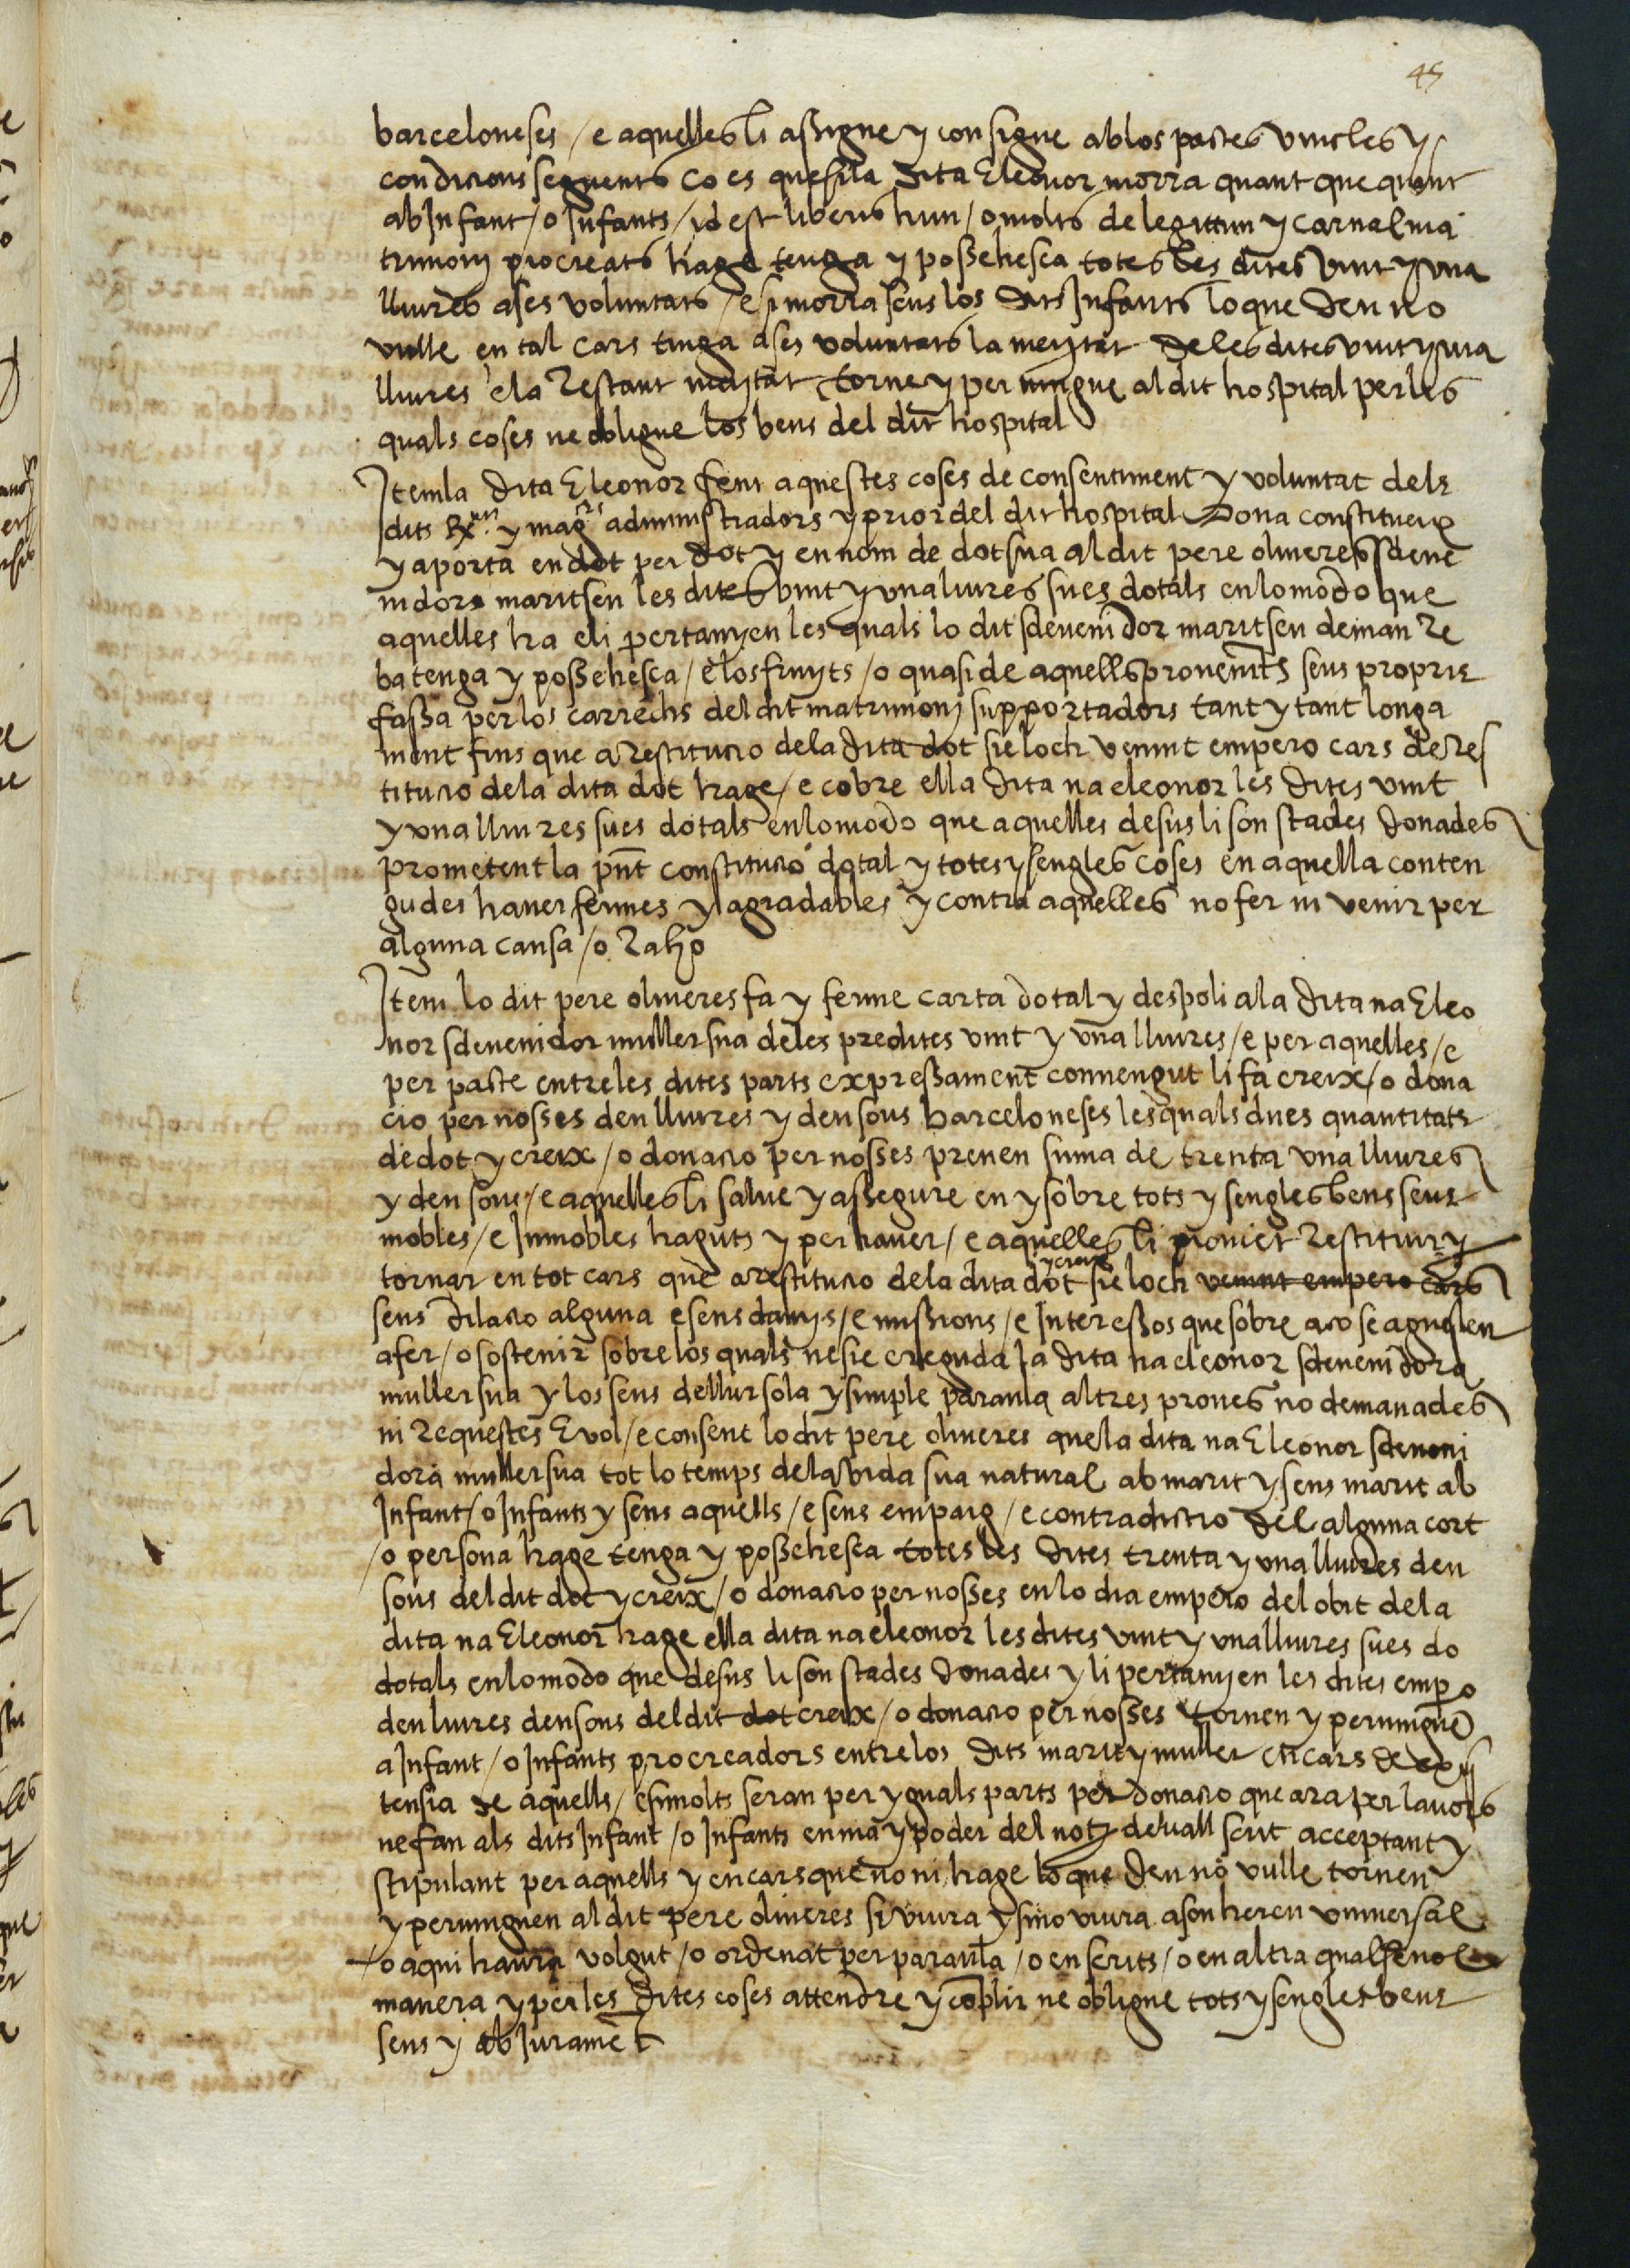 45
barceloneses / e aquelles li assigne y consigne ab los pactes vincles y
condicions seguents ço es que si la dita Eleonor morra quant que quant
ab Infant / o Infants / id est liberis hun / o molts de legittim y carnal ma
trimonj procreats hage tenga y possehesca totes les dites vint y una
lliures a ses voluntats / e si morra sens los dits Infants lo que deu no
vulle en tal cars tinga a ses voluntats la meytat de les dites vint y una
lliures e la restant meytat torne y pervingue al dit hospital per les
quals coses ne obligue los bens del dit hospital
Item la dita Eleonor fent aquestes coses de consentiment y voluntat dels
dits Rx.nts y mag.chs administradors y prior del dit hospital Dona constitueix
y aporta en dot per dot y en nom de dot sua al dit pere oliveres sdeve
nidor marit seu les dites vint y una liures sues dotals en lo modo que
aquelles ha e li pertanyen les quals lo dit sdevenidor marit seu deman re
ba tenga y possehesca / e los fruyts / o quasi de aquells provenints seus propris
fassa per los carrechs del dit matrimonj supportadors tant y tant longa
ment fins que a restitucio de la dita dot sie loch venint empero cars de res
titucio de la dita dot hage / e cobre ella dita na eleonor les dites vint
y una lliures sues dotals en lo modo que aquelles desus li son stades donades
prometent la pnt constitucio dotal y totes y sengles coses en aquella conten
gudes haver fermes y agradables y contra aquelles no fer ni venir per
alguna causa / o raho
Item lo dit pere oliveres fa y ferme carta dotal y despoli a la dita na Eleo
nor sdevenidor muller sua de les predites vint y una lliures / e per aquelles / e
per pacte entre les dites parts expressament convengut li fa creix / o dona
cio per nosses deu lliures y deu sous barceloneses les quals dues quantitats
de dot y creix / o donacio per nosses prenen suma de trenta una lliures
y deu sous / e aquelles li salve y assegure en y sobre tots y sengles bens seus
mobles / e Inmobles haguts y per haver / e aquelles li promet restituir y
tornar en tot cars que a restitucio de la dita dot y creix sie loch venint empero cars
sens dilacio alguna e sens danys / e missions / e Interessos que sobre aço se aguessen
a fer / o sostenir sobre los quals ne sie creguda la dita na eleonor sdevenidora
muller sua y los seus de llur sola y simple paraula altres proves no demanades
ni requestes E vol / e consent lo dit pere oliveres que la dita na Eleonor sdeveni
dora muller sua tot lo temps de la vida sua natural ab marit y sens marit ab
Infant / o Infants y sens aquells / e sens empaig / e contradictio del alguna cort
/ o persona hage tenga y possehesca totes les dites trenta y una lliures deu
sous del dit dot y creix / o donacio per nosses en lo dia empero del obit de la
dita na Eleonor hage ella dita na eleonor les dites vint y una lliures sues do
dotals en lo modo que desus li son stades donades y li pertanyen les dites empo
deu liures deu sous del dit dot creix / o donacio per nosses tornen y pervinguen
a Infant / o Infants procreadors entre los dits marit y muller en cars de exis
tensia de aquells / e si molts seran per yguals parts per donacio que ara per lavors
ne fan als dits Infant / o Infants en ma y poder del noty devall scrit acceptant y
stipulant per aquells y en cars que no ni hage lo que deu no vulle tornen
y pervinguen al dit pere oliveres si viura y si no viura a son hereu universal
/ o a qui haura volgut / o ordenat per paraula / o en scrits / o en altra qualsevol
manera y per les dites coses attendre y complir ne obligue tots y sengles bens
seus y ab Jurament